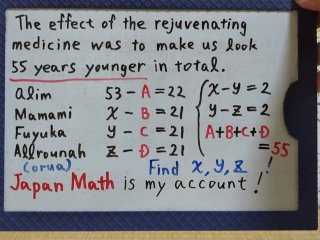 The effect of the rejuvenating
medicine was to make us look
55 years younger in total.
Alim 53 - A = 22
Mamami x - B = 21
Fuyuka y - C = 21
Allrounah z - D = 21
(orua)
x - y = 2
y - z = 2
A+B+C+D
= 55
Find x, y, z !
Japan Math is my account !